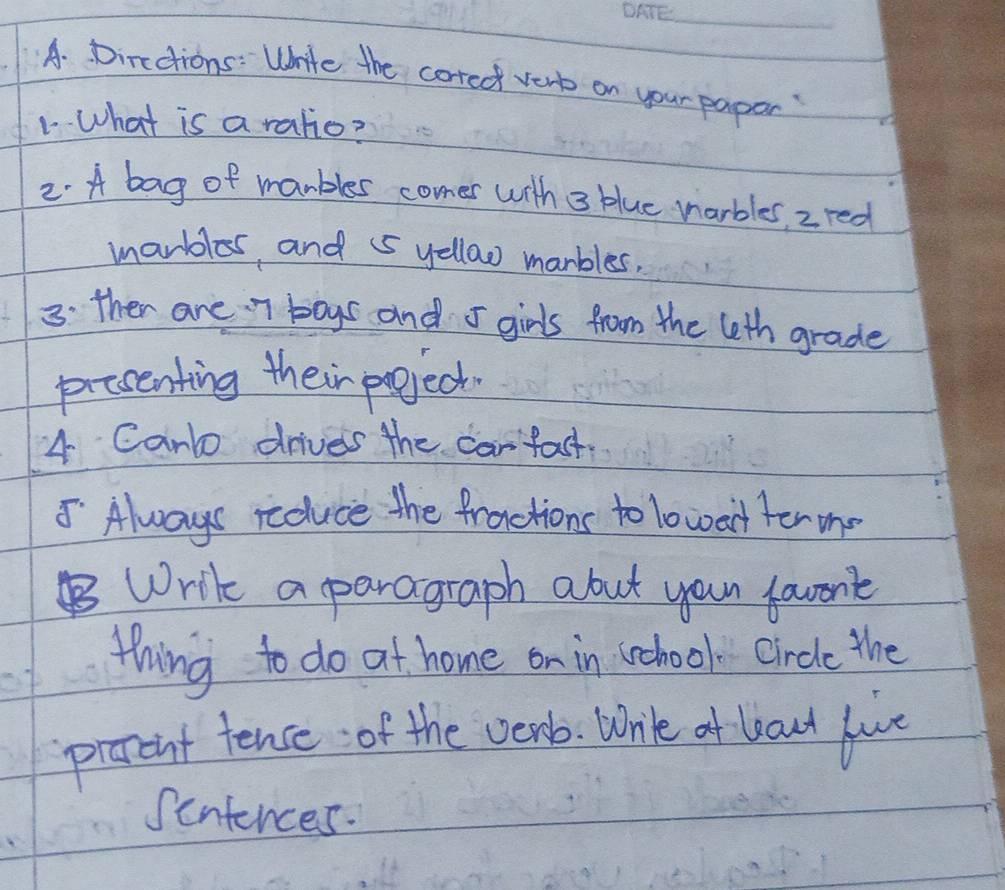 DATE:
A. Directions: Write the correct verb on your paper.
1. What is a ratio?
2. A bag of marbles comes with 3 blue marbles, 2 red
marbles, and 5 yellow marbles.
3. Then are 7 boys and 5 girls from the 6th grade
presenting their project.
4. Carlo drives the car fast.
5. Always reduce the fractions to lowest terms
B Write a paragraph about your favorite
thing to do at home or in school. Circle the
present tense of the verb. Write at least five
sentences.